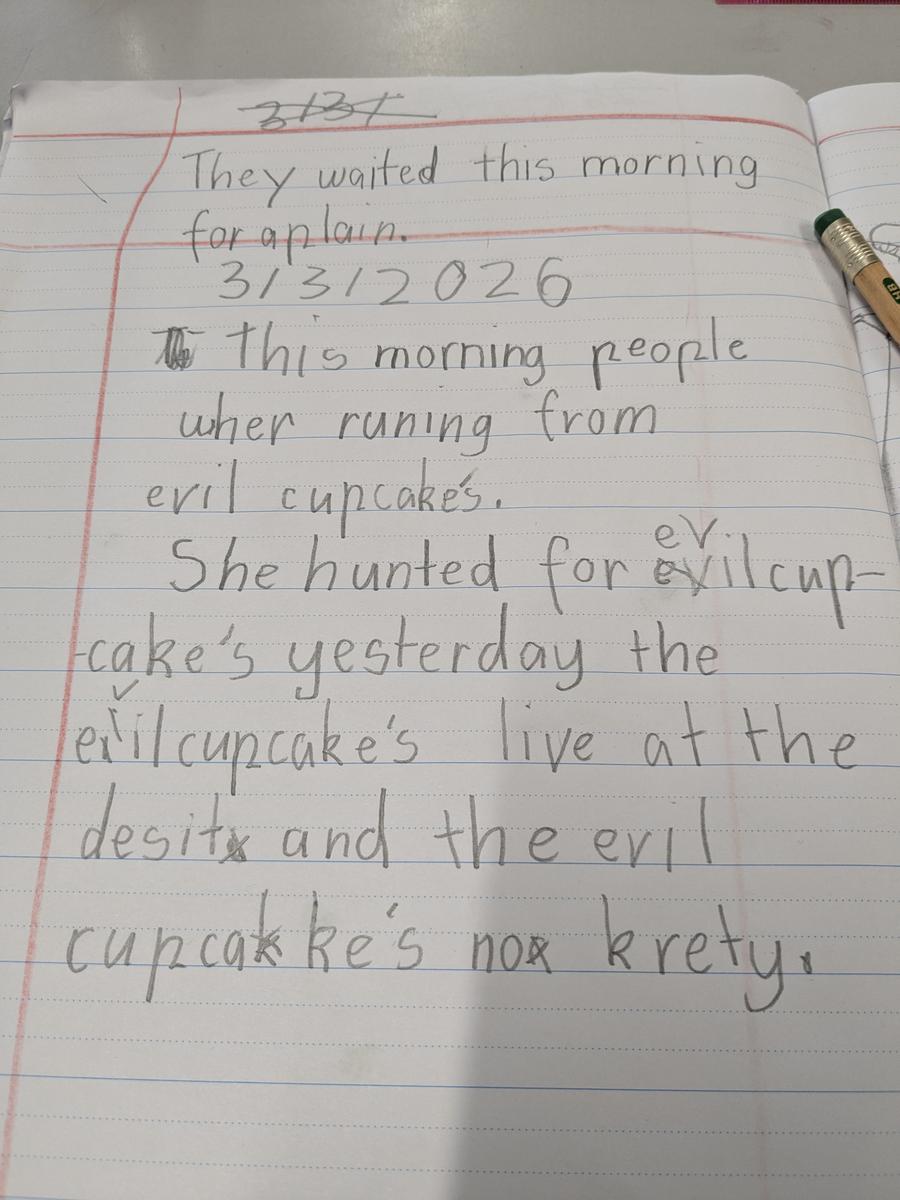 3/3/
They waited this morning
for a plain.
3/3/2026
This morning people
wher runing from
evil cupcake's.
ev
She hunted for evil cup-
-cake's yesterday the
v
evil cupcake's live at the
desit and the evil
cupcakke's no krety.
HB